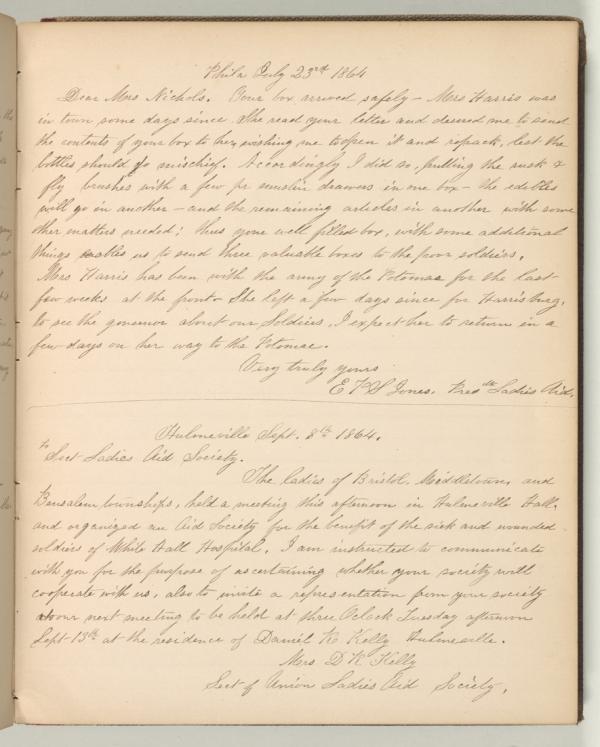 Phila July 23rd 1864
Dear Mrs Nichols. Your box arrived safely – Mrs Harris was
in town some days since She read your letter and desired me to send
the contents of your box to her, wishing me to open it and repack, lest the
bottles should do mischief. Accordingly I did so, putting the rusk &
fly brushes with a few pr muslin drawers in one box – the edibles
will go in another – and the remaining articles in another with some
other matters needed; thus your well filled box, with some additional
things enables us to send three valuable boxes to the poor soldiers.
Mrs Harris has been with the army of the Potomac for the last
few weeks at the front. She left a few days since for Harrisburg,
to see the governor about our Soldiers, I expect her to return in a
few days on her way to the Potomac.
Very truly yours
E P S Jones. Pres dt Ladies Aid.
Hulmeville Sept. 8th 1864.
to Sect Ladies Aid Society.
The ladies of Bristol, Middletown, and
Bensalem townships, held a meeting this afternoon in Hulmeville Hall,
and organized an Aid Society for the benefit of the sick and wounded
soldiers of White Hall Hospital. I am instructed to communicate
with you for the purpose of ascertaining whether your society will
cooperate with us, also to invite a representation from your society
at our next meeting to be held at three Oclock Tuesday afternoon
Sept 13th at the residence of Daniel K Kelly Hulmeville.
Mrs D K Kelly
Sect of Union Ladies Aid Society.